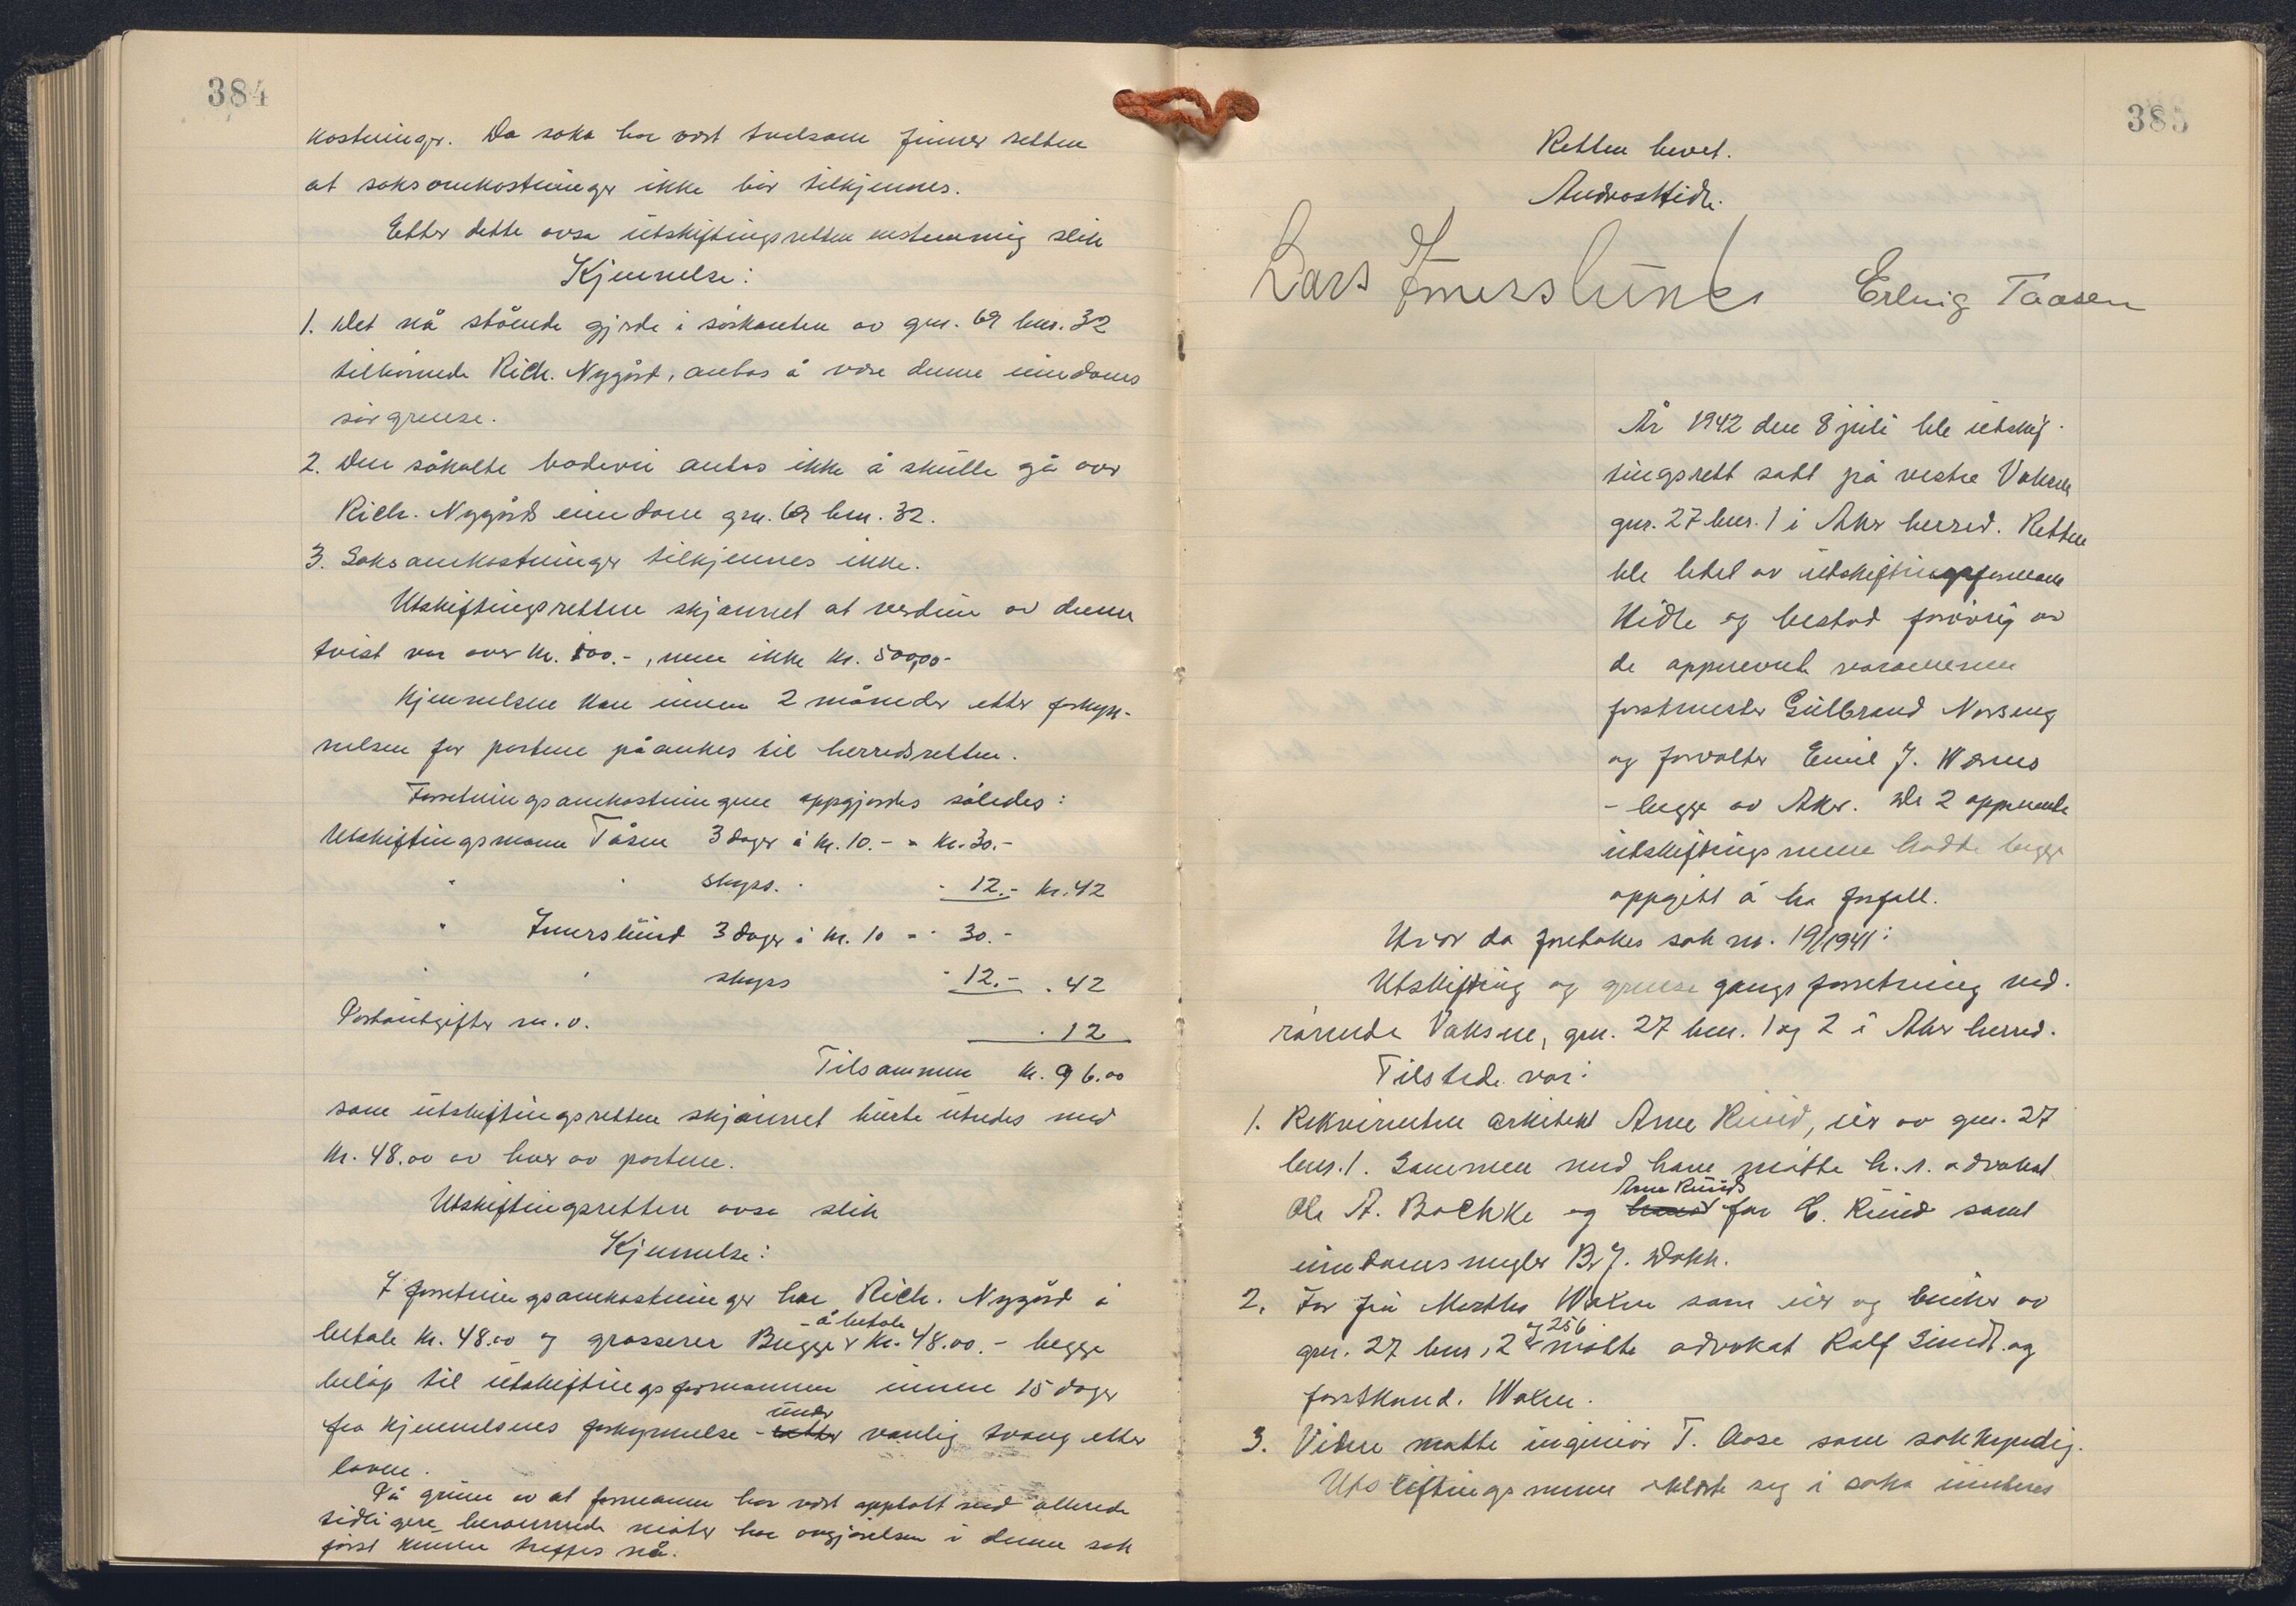 384
kostninger. Da saka har vært tvilsom finner retten
at saksomkostninger ikke bør tilkjennes.
Etter dette avsa utskiftingsretten enstemmig slik
Kjennelse:
1. Det nå stående gjerde i sørkanten av gnr. 69 bnr. 32
tilhørende Rich. Nygård, antas å være denne eiendoms
sør grense.
2. Den såkalte badevei antas ikke å skulle gå over
Rich. Nygårds eiendom gnr. 69 bnr. 32.
3. Saksomkostninger tilkjennes ikke.
Utskiftingsretten skjønnet at verdien av denne
tvist var over kr. 100.-, men ikke kr. 500,00-
Kjennelsen kan innen 2 måneder etter forkyn-
nelsen for partene påankes til herredsretten.
Forretningsomkostningene oppgjordes således:
Utskiftingsmann Tåsen 3 dager á kr. 10.- = kr. 30.-
" " skyss. " " 12.- kr. 42
" Imerslund 3 dager á kr. 10 = " 30.-
" " skyss " 12.- " 42
Portoutgifter m.v. " 12
Tilsammen kr. 96.00
som utskiftingsretten skjønnet burte utredes med
kr. 48.00 av hver av partene.
Utskiftingsretten avsa slik
Kjennelse:
I forretningsomkostninger har Rich. Nygård å
betale kr. 48.00 og grosserer Bugge å betale kr. 48.00.- begge
beløp til utskiftingsformannen innen 15 dager
fra kjennelsens forkynnelse - etter under vanlig tvang etter
loven.
På grunn av at formannen har vært opptatt med allerede
tidligere berammede møter har avgjørelsen i denne sak
først kunne treffes nå.
385
Retten hevet.
Andreas Hidle.
Lars Imerslund Erling Taasen
År 1942 den 8 juli ble utskif-
tingsrett satt på vestre Vaksen
gnr. 27 bnr. 1 i Aker herred. Retten
ble ledet av utskiftingsformann
Hidle og bestod forøvrig av
de oppnevnte varamenn
forstmester Gulbrand Norseng
og forvalter Emil J.
- begge av Aker. De 2 oppnevnte
utskiftingsmenn hadde begge
oppgitt å ha forfall.
Hvor da foretokes sak nr. 19/1941:
Utskifting og grensegangsforretning ved-
rørende Vaksne, gnr. 27 bnr. 1 og 2 i Aker herred.
Tilstede var:
1. Rekvirenten arkitekt Arne Ruud, eier av gnr. 27
bnr. 1. Sammen med ham møtte h.r. advokat
Ole A. Bachke og Arne Ruuds far C. Ruud samt
eiendomsmegler B. J. Dokk.
2. For fru Marthe Waxen som eier og bruker av
gnr. 27 bnr. 2 og 256 møtte advokat Ralf Lindt og
forstkand. Waxen.
3. Videre møtte ingeniør T. Aase som sakkyndig.
Utskiftingsmenn erklærte seg i saka uinteres